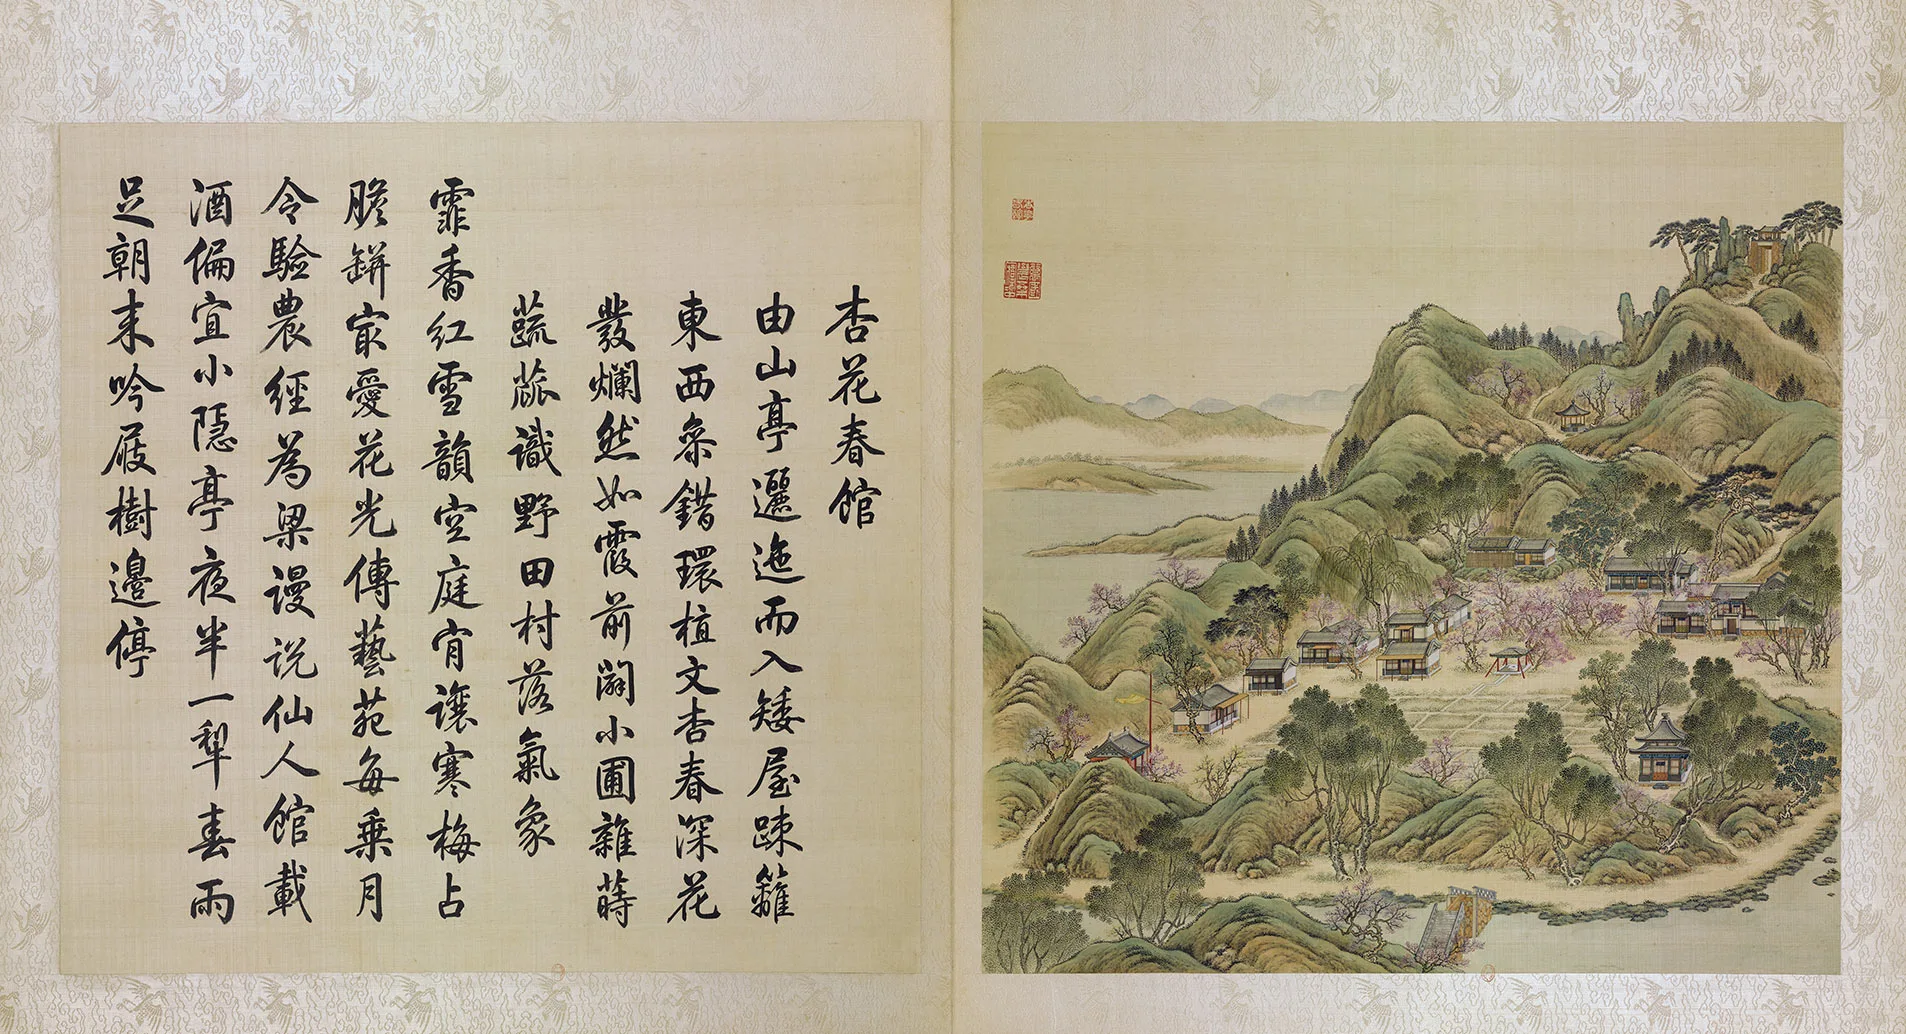 杏花春館
由山亭邐迤而入矮屋疎籬
東西粂錯環植文杏春深花
發爛然如霞前闢小圃雜蒔
蔬蓏識野田村落氣象
霏香紅雪韻空庭肯讓寒梅占
膽缾㝡愛花光傳藝苑每乗月
令驗農經為梁謾説仙人館載
酒偏宜小隠亭夜半一犁春雨
足朝来吟屐樹邊停